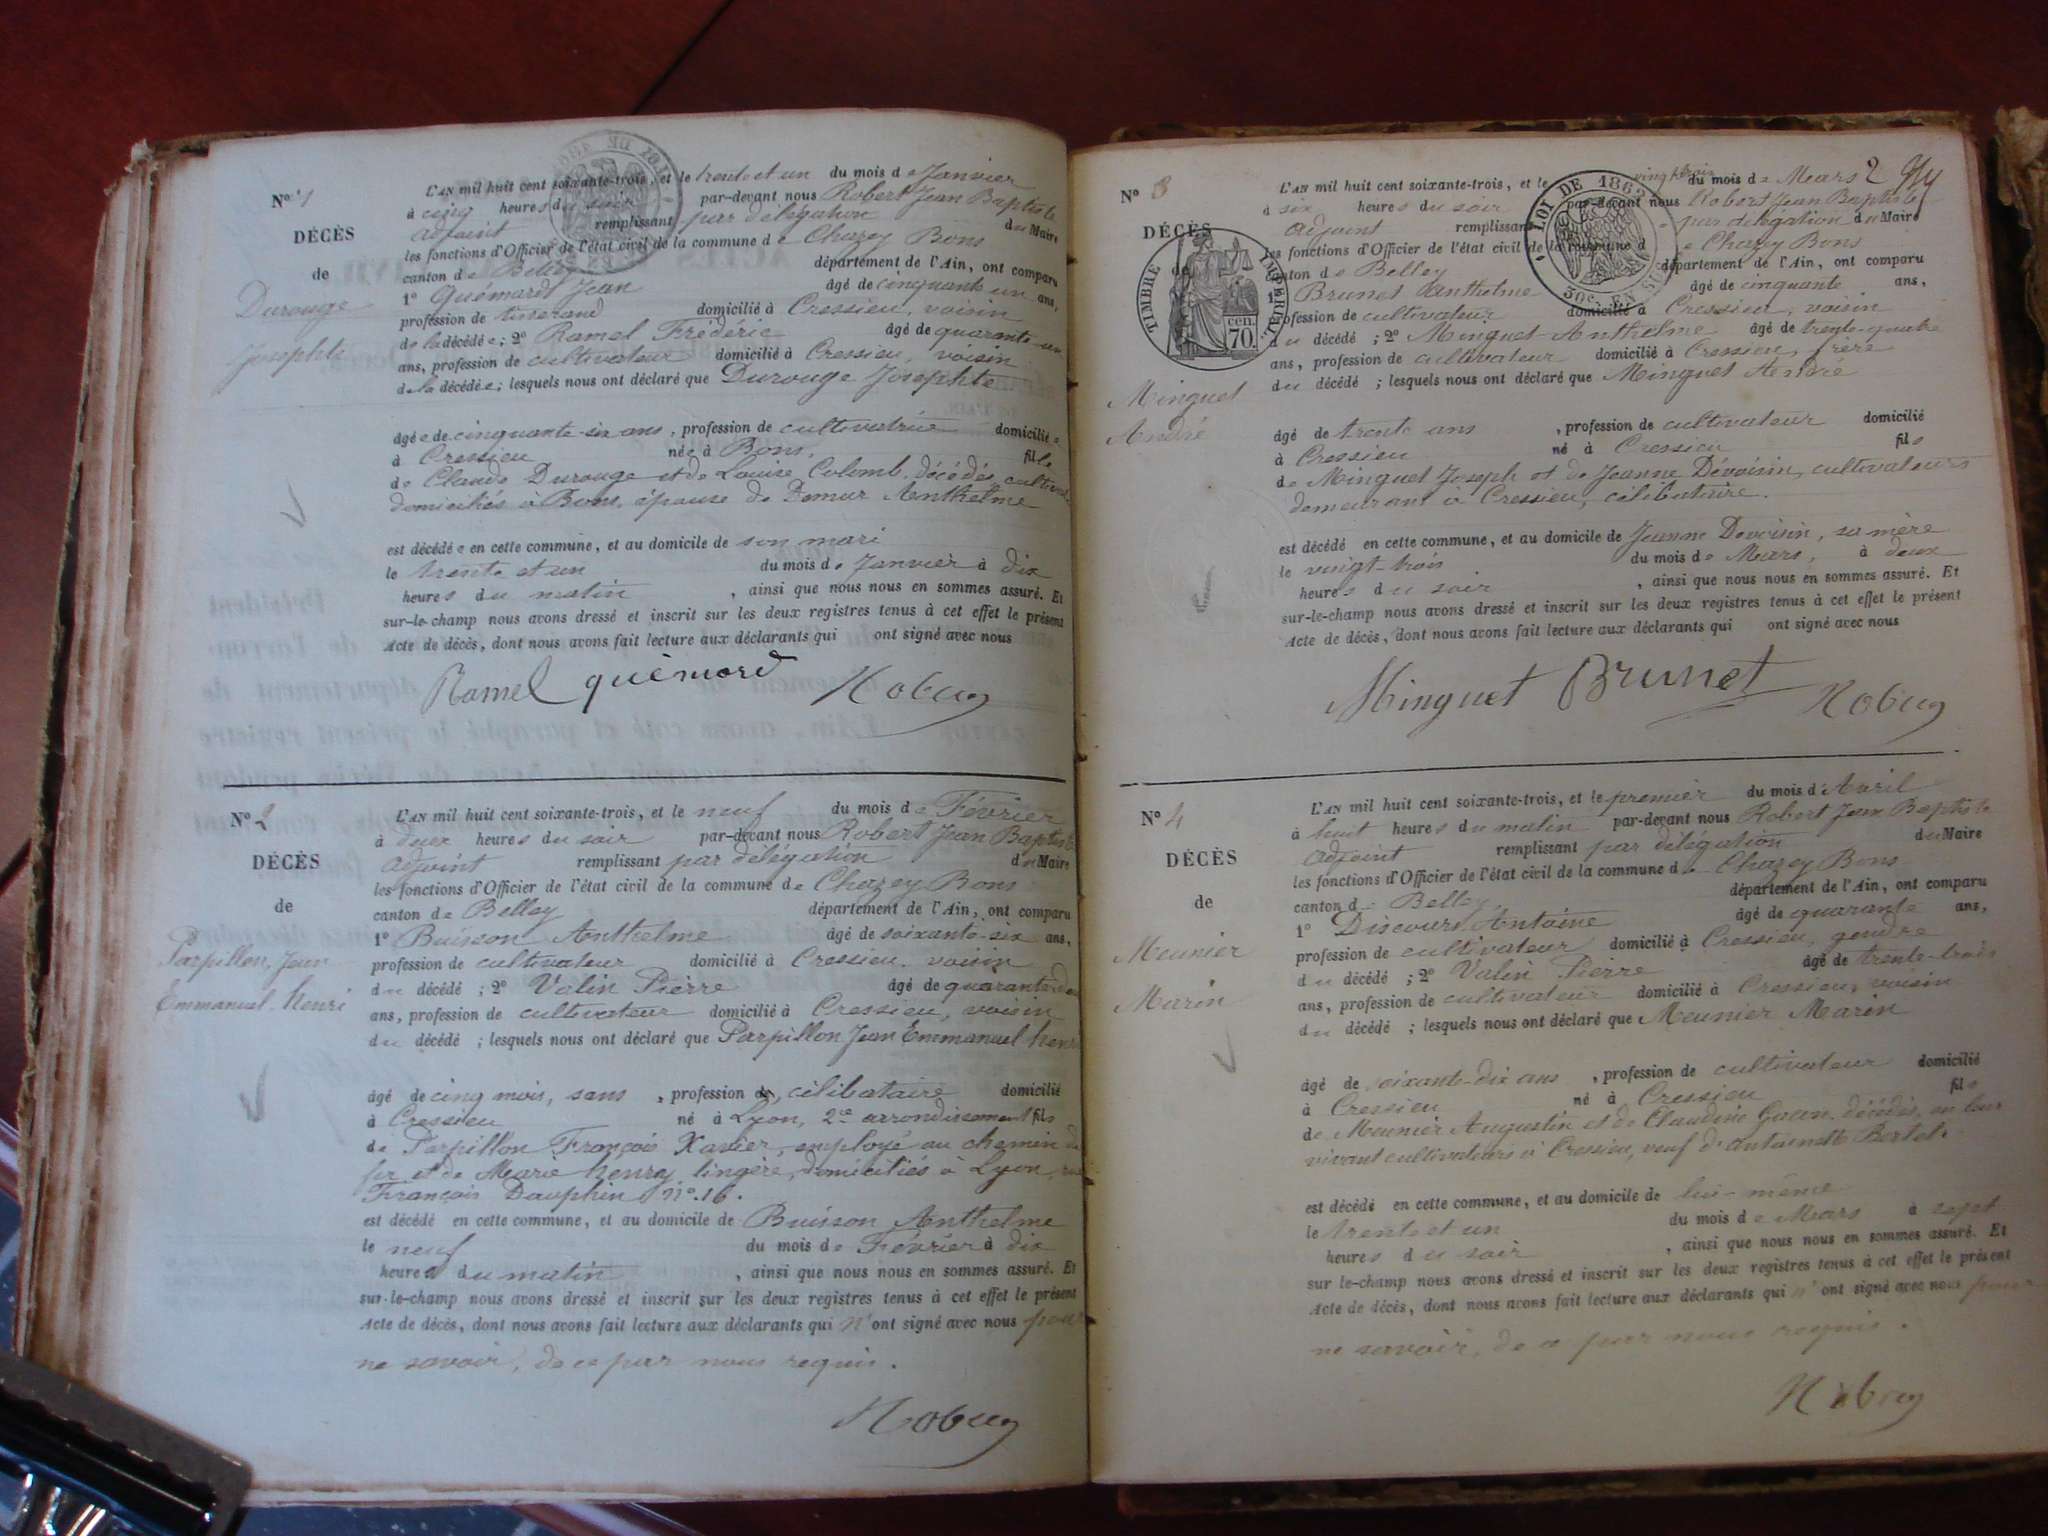 N° 1
DÉCÈS
de
Durouge
Josephte
L'AN mil huit cent soixante-trois, et le trente et un du mois de Janvier
à cinq heures du soir par-devant nous Robert Jean Baptiste
adjoint remplissant par délégation du Maire
les fonctions d'Officier de l'état civil de la commune de Chazey Bons
canton de Belley département de l'Ain, ont comparu
1° Quémard Jean âgé de cinquante un ans,
profession de tisserand domicilié à Cressieu, voisin
de la décédée; 2° Ramel Frédéric âgé de quarante-un
ans, profession de cultivateur domicilié à Cressieu, voisin
de la décédée; lesquels nous ont déclaré que Durouge Josephte
âgée de cinquante-six ans, profession de cultivatrice domiciliée
à Cressieu née à Bons, fille
de Claude Durouge et de Louise Colomb, décédés,
domiciliés à Bons, épouse de Demur Anthelme
est décédée en cette commune, et au domicile de son mari
le trente et un du mois de Janvier à dix
heures du matin, ainsi que nous nous en sommes assuré. Et
sur-le-champ nous avons dressé et inscrit sur les deux registres tenus à cet effet le présent
Acte de décès, dont nous avons fait lecture aux déclarants qui ont signé avec nous
Ramel quémard
N° 2
DÉCÈS
de
Parpillon, Jean
Emmanuel henri
L'AN mil huit cent soixante-trois, et le neuf du mois de Février
à deux heures du soir par-devant nous Robert Jean Baptiste
adjoint remplissant par délégation du Maire
les fonctions d'Officier de l'état civil de la commune de Chazey Bons
canton de Belley département de l'Ain, ont comparu
1° Buisson Anthelme âgé de soixante-six ans,
profession de cultivateur domicilié à Cressieu, voisin
du décédé; 2° Valin Pierre âgé de
ans, profession de cultivateur domicilié à Cressieu, voisin
du décédé; lesquels nous ont déclaré que Parpillon Jean Emmanuel henri
âgé de cinq mois, sans, profession de, célibataire domicilié
à Cressieu né à Lyon, 2e arrondissement fils
de Parpillon François Xavier, employé au chemin de
fer et de Marie henry lingère, domiciliés à Lyon, rue
François Dauphin n° 16.
est décédé en cette commune, et au domicile de Buisson Anthelme
le neuf du mois de Février à dix
heures du matin, ainsi que nous nous en sommes assuré. Et
sur-le-champ nous avons dressé et inscrit sur les deux registres tenus à cet effet le présent
Acte de décès, dont nous avons fait lecture aux déclarants qui n'ont signé avec nous pour
ne savoir, de ce par nous requis.
2
N° 3
DÉCÈS
de
TIMBRE IMPERIAL
70 cen.
Minguet
André
LOI DE 1862
L'AN mil huit cent soixante-trois, et le vingt-trois du mois de Mars
à six heures du soir par-devant nous Robert Jean Baptiste
adjoint remplissant par délégation du Maire
les fonctions d'Officier de l'état civil de la commune de Chazey Bons
canton de Belley département de l'Ain, ont comparu
1° Brunet Anthelme âgé de cinquante ans,
profession de cultivateur domicilié à Cressieu, voisin
du décédé; 2° Minguet Anthelme âgé de trente-quatre
ans, profession de cultivateur domicilié à Cressieu, frère
du décédé; lesquels nous ont déclaré que Minguet André
âgé de trente ans, profession de cultivateur domicilié
à Cressieu né à Cressieu fils
de Minguet Joseph et de Jeanne Dévoisin, cultivateurs
demeurant à Cressieu, célibataire.
est décédé en cette commune, et au domicile de Jeanne Devoisin, sa mère
le vingt-trois du mois de Mars, à deux
heures du soir, ainsi que nous nous en sommes assuré. Et
sur-le-champ nous avons dressé et inscrit sur les deux registres tenus à cet effet le présent
Acte de décès, dont nous avons fait lecture aux déclarants qui ont signé avec nous
Minguet Brunet
N° 4
DÉCÈS
de
Meunier
Marin
L'AN mil huit cent soixante-trois, et le premier du mois d'Avril
à huit heures du matin par-devant nous Robert Jean Baptiste
adjoint remplissant par délégation du Maire
les fonctions d'Officier de l'état civil de la commune de Chazey Bons
canton de Belley, département de l'Ain, ont comparu
1° Discours Antoine âgé de quarante ans,
profession de cultivateur domicilié à Cressieu, gendre
du décédé; 2° Valin Pierre âgé de trente-trois
ans, profession de cultivateur domicilié à Cressieu, voisin
du décédé; lesquels nous ont déclaré que Meunier Marin
âgé de soixante-dix ans, profession de cultivateur domicilié
à Cressieu né à Cressieu fils
de Meunier Augustin et de Claudine décédés, en leur
vivant cultivateurs à Cressieu, veuf d'Antoinette Bertet.
est décédé en cette commune, et au domicile de lui-même
le trente et un du mois de Mars à sept
heures du soir, ainsi que nous nous en sommes assuré. Et
sur le-champ nous avons dressé et inscrit sur les deux registres tenus à cet effet le présent
Acte de décès, dont nous avons fait lecture aux déclarants qui n'ont signé avec nous pour
ne savoir, de ce par nous requis.